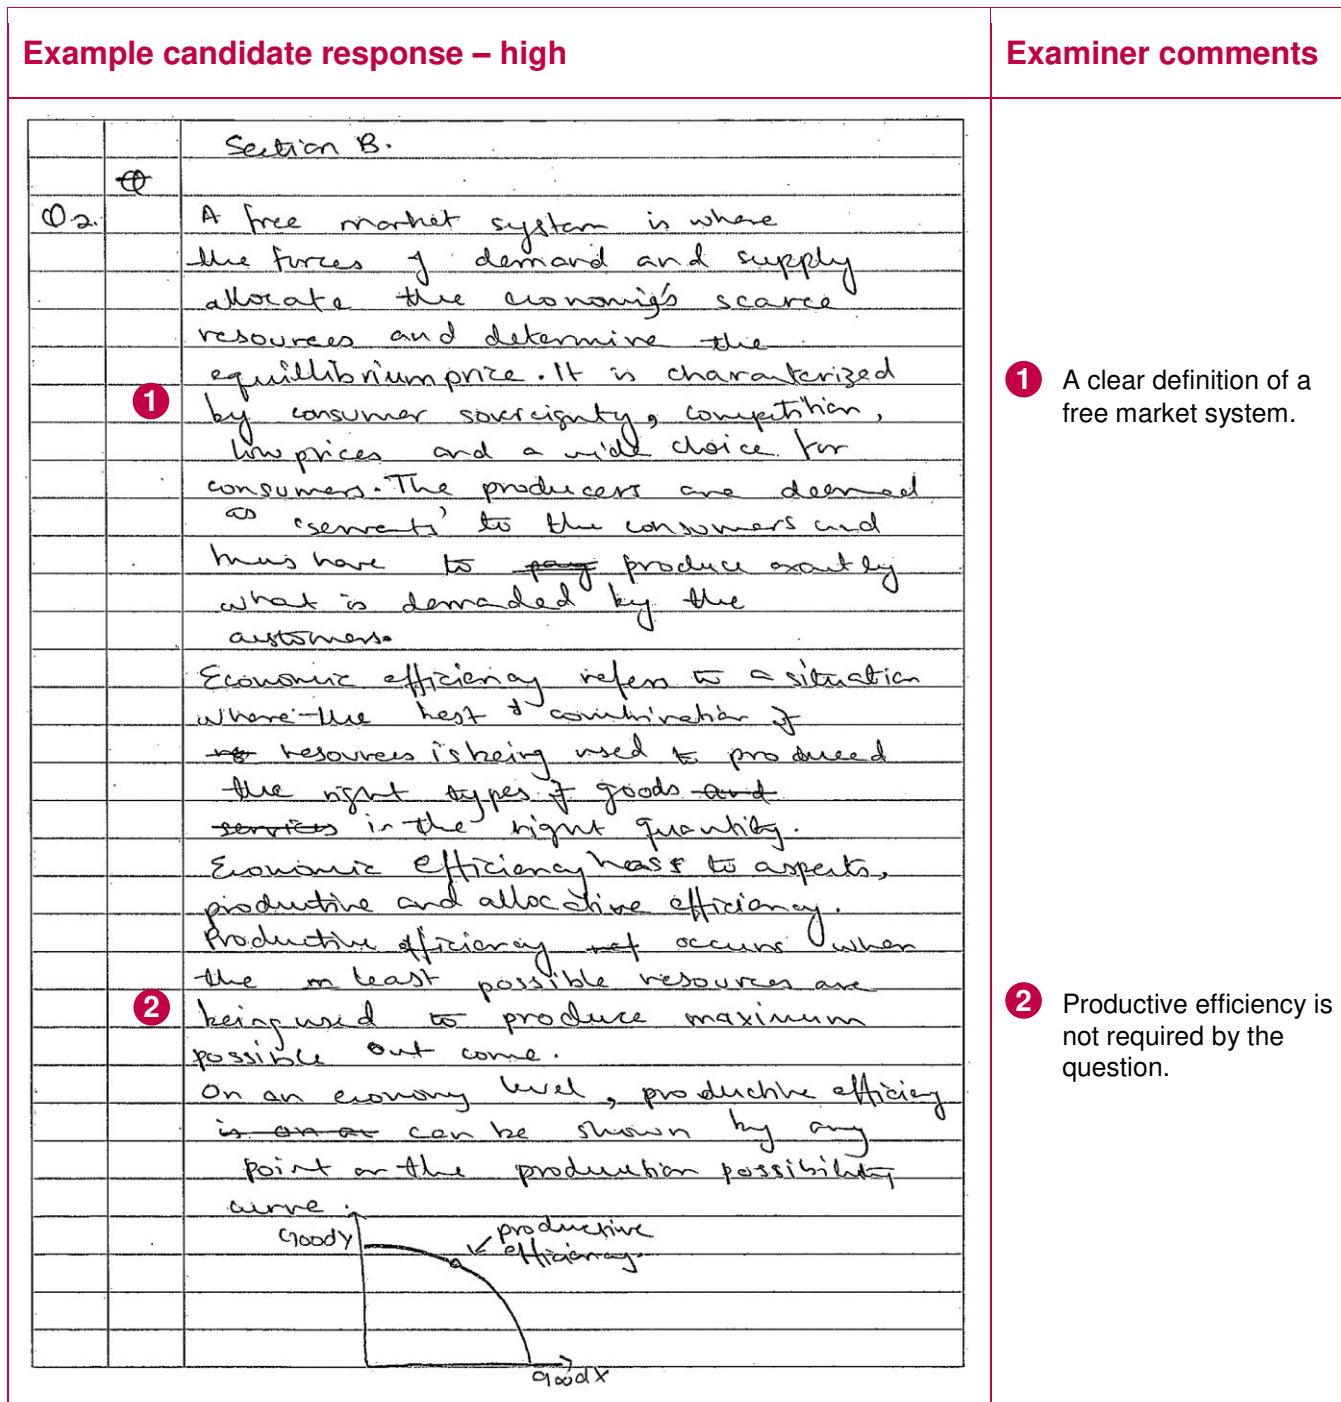 Example candidate response – high
Examiner comments
Section B.
Q2.
A free market system is where
the forces of demand and supply
allocate the economy's scarce
resources and determine the
equillibrium price. It is charaterized
1
by consumer sovereignty, competition,
low prices and a wide choice for
consumers. The producers are deemed
as 'servents' to the consumers and
thus have to produce exactly
what is demaded by the
customers.
Economic efficiency refers to a situation
where the best combination of
resources is being used to produced
the right types of goods and
services in the right quantity.
Economic efficiency has to aspects,
productive and allocative efficiency.
Productive efficiency occurs when
the least possible resources are
2
being used to produce maximum
possible out come.
On an economy level, productive efficiey
is on a can be shown by any
point on the production possibility
curve.
Good Y
productive
efficiency.
Good X
1 A clear definition of a
free market system.
2 Productive efficiency is
not required by the
question.